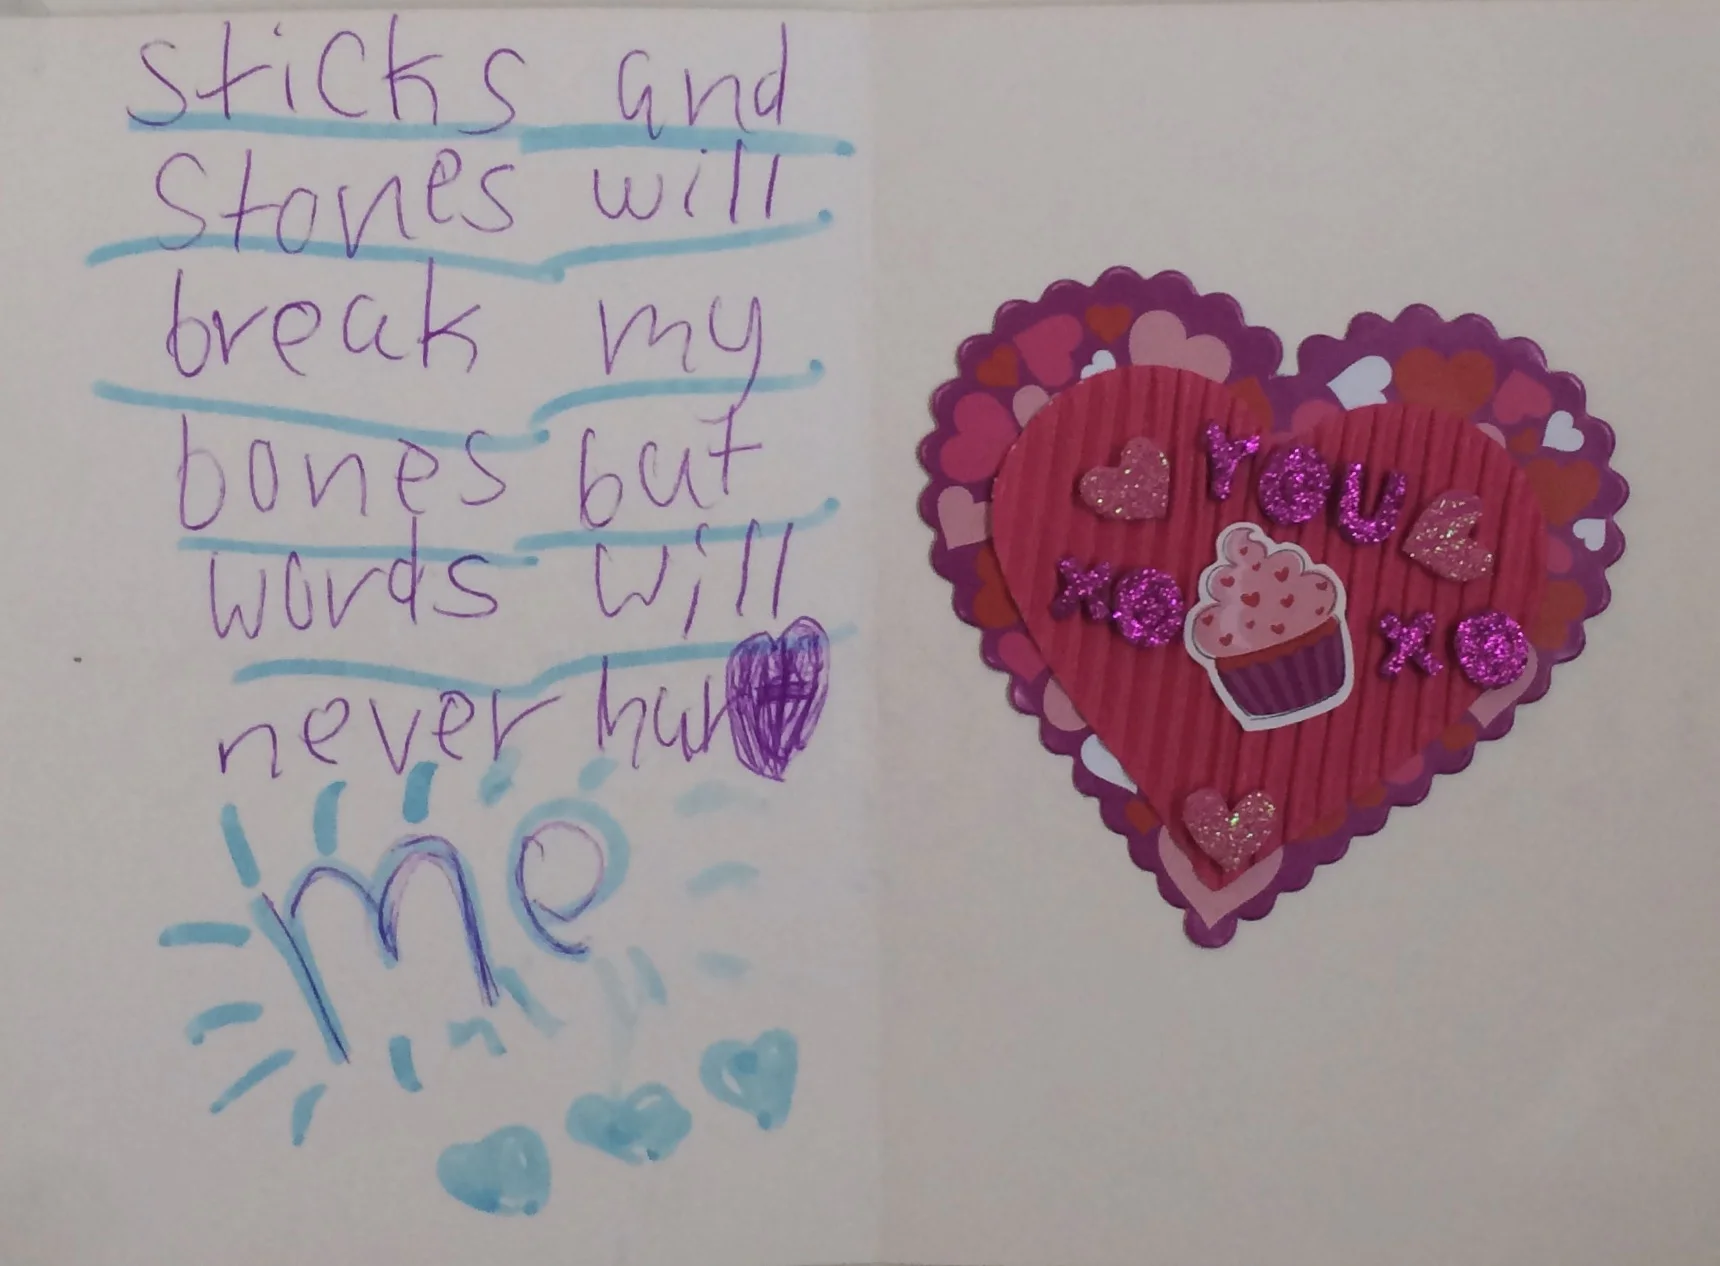 sticks and
stones will
break my
bones but
words will
never hur
me
YOU
XO XO